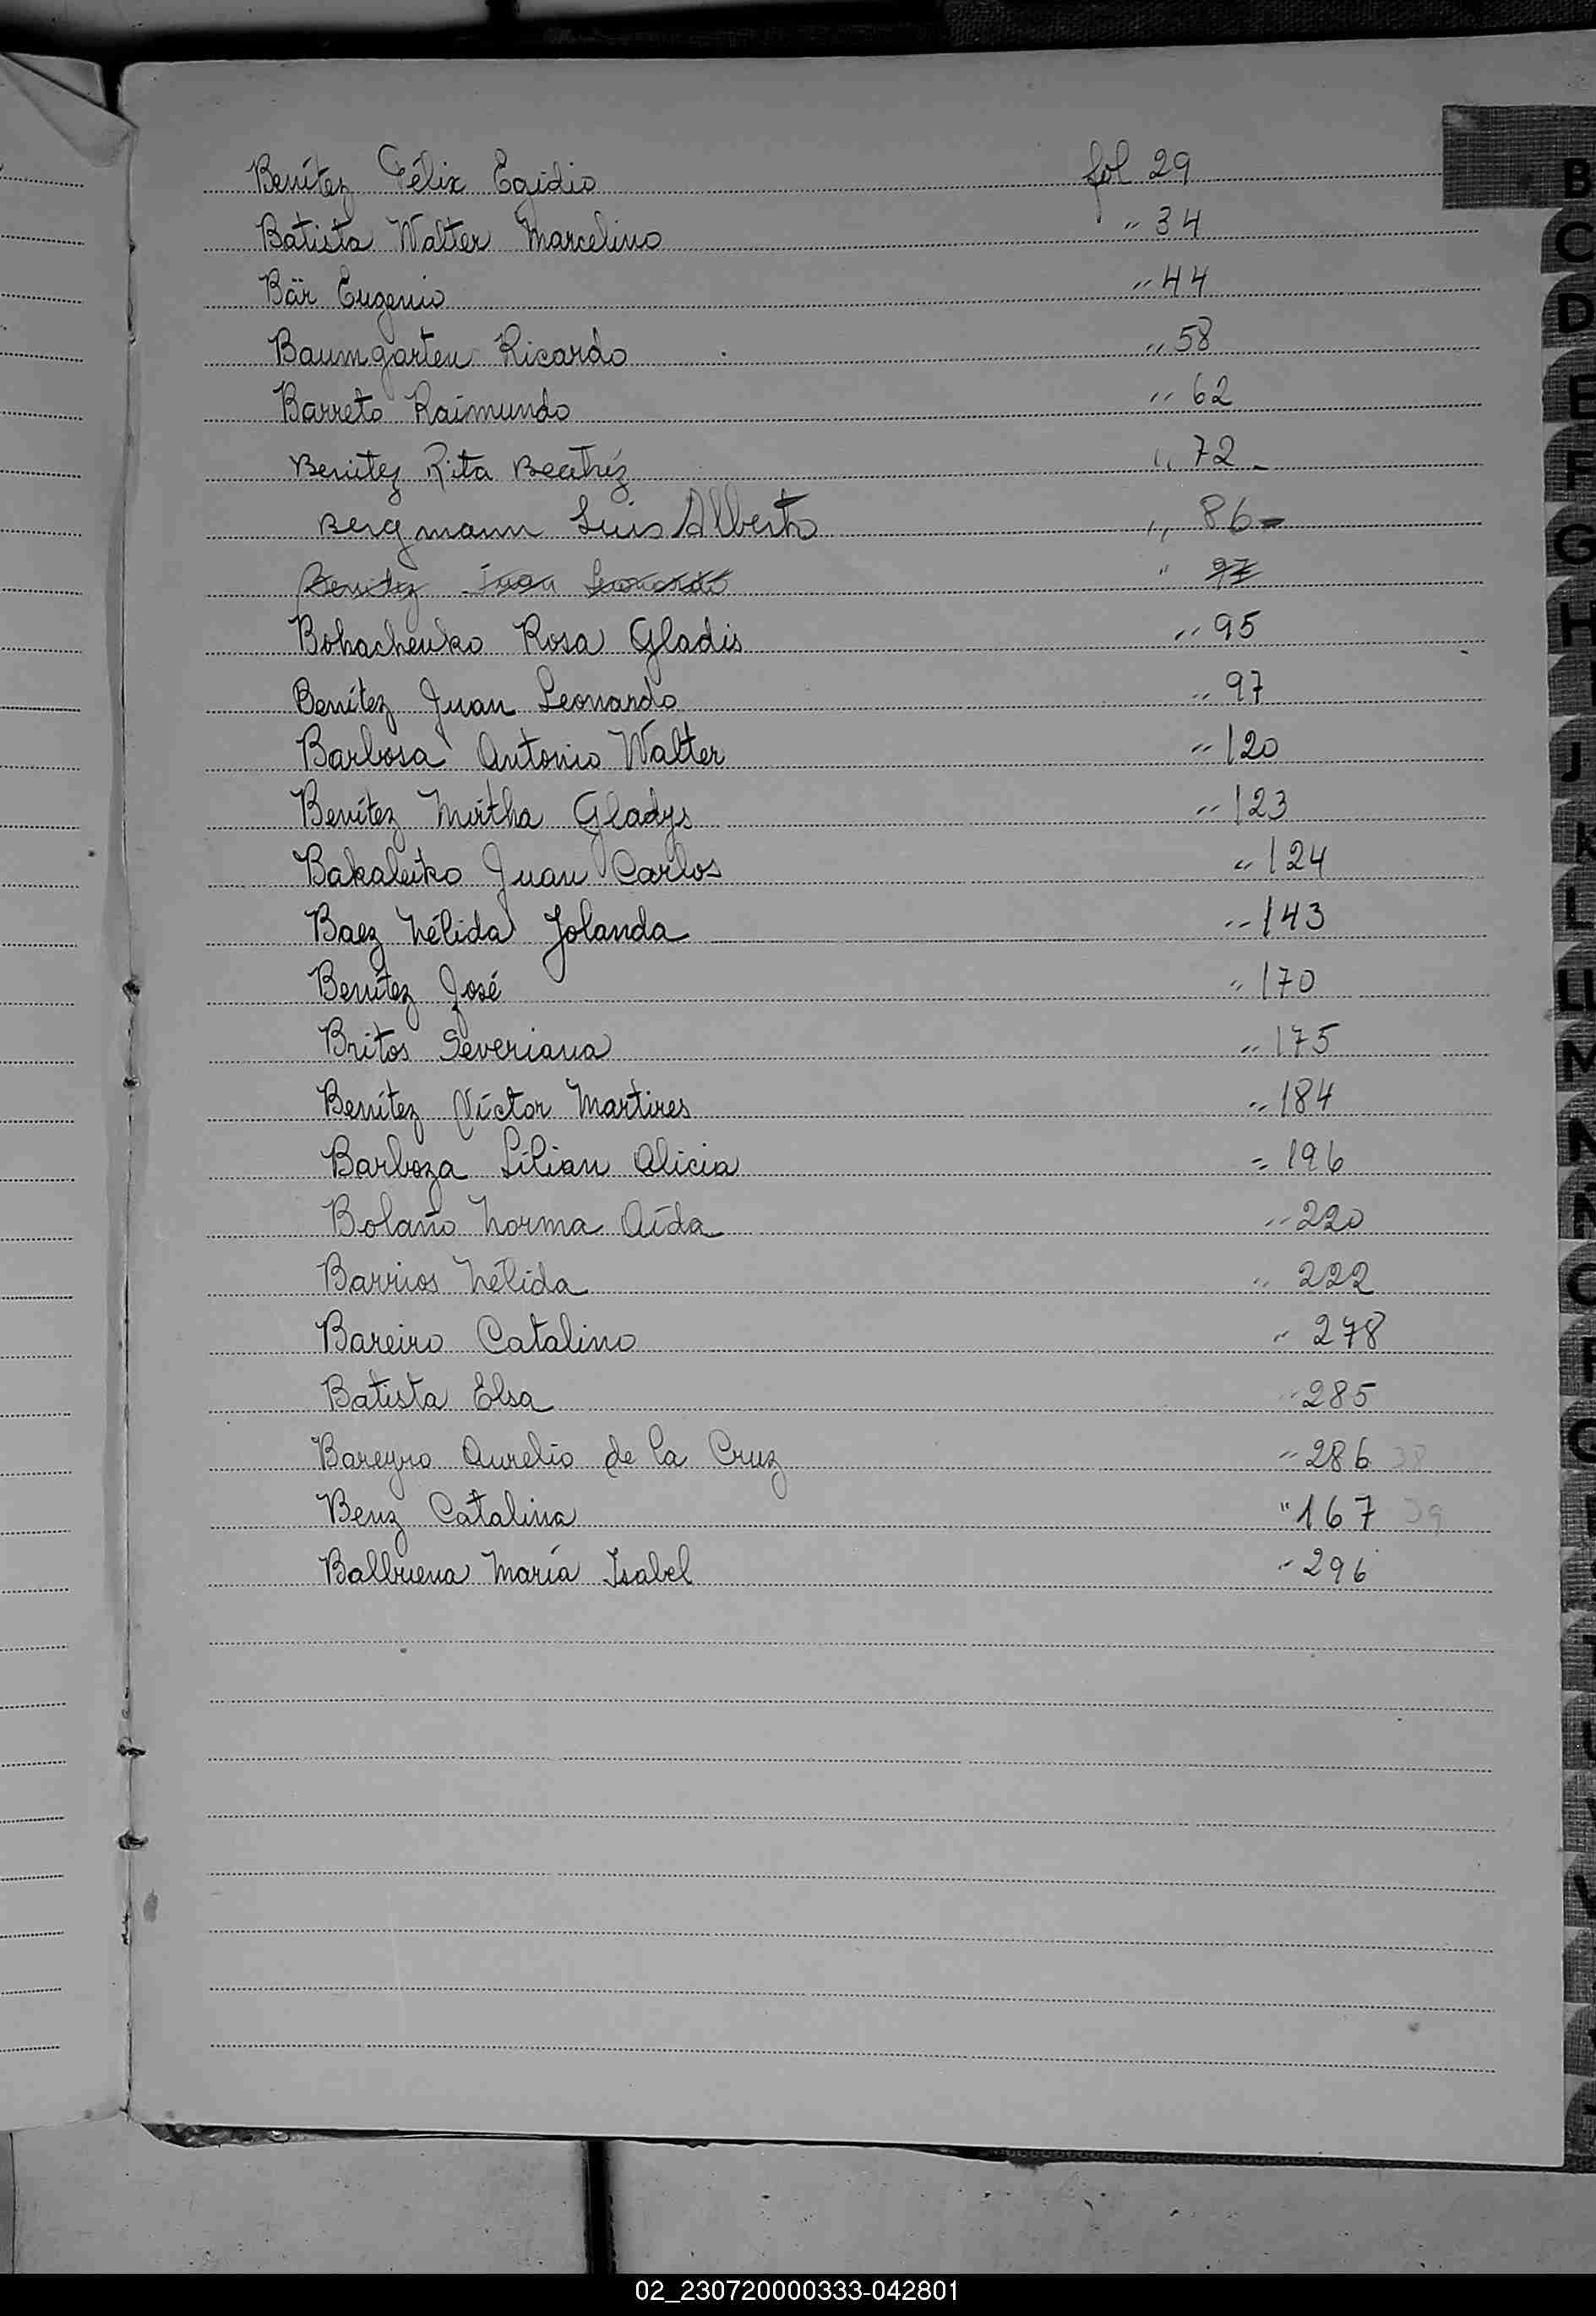 Benítez Félix Egidio fol 29
Batista Walter Marcelino " 34
Bär Eugenio " 44
Baumgarten Ricardo " 58
Barreto Raimundo " 62
Benitez Rita Beatríz " 72
Bergmann Luis Alberto " 86
Benitez Juan Leonardo " 97
Bohachenko Rosa Gladis " 95
Benítez Juan Leonardo " 97
Barbosa Antonio Walter " 120
Benítez Mirtha Gladys " 123
Bakaleiko Juan Carlos " 124
Baez Nélida Jolanda " 143
Benítez José " 170
Britos Severiana " 175
Benítez Víctor Martires " 184
Barboza Lilian Alicia " 196
Bolaño Norma Aída " 220
Barrios Nélida " 222
Bareiro Catalino " 278
Batista Elsa " 285
Bareyro Aurelio de la Cruz " 286
Benz Catalina " 167
Balbuena María Isabel " 296
B
C
D
E
F
G
H
I
J
K
L
LL
M
N
Ñ
O
P
Q
02_230720000333-042801